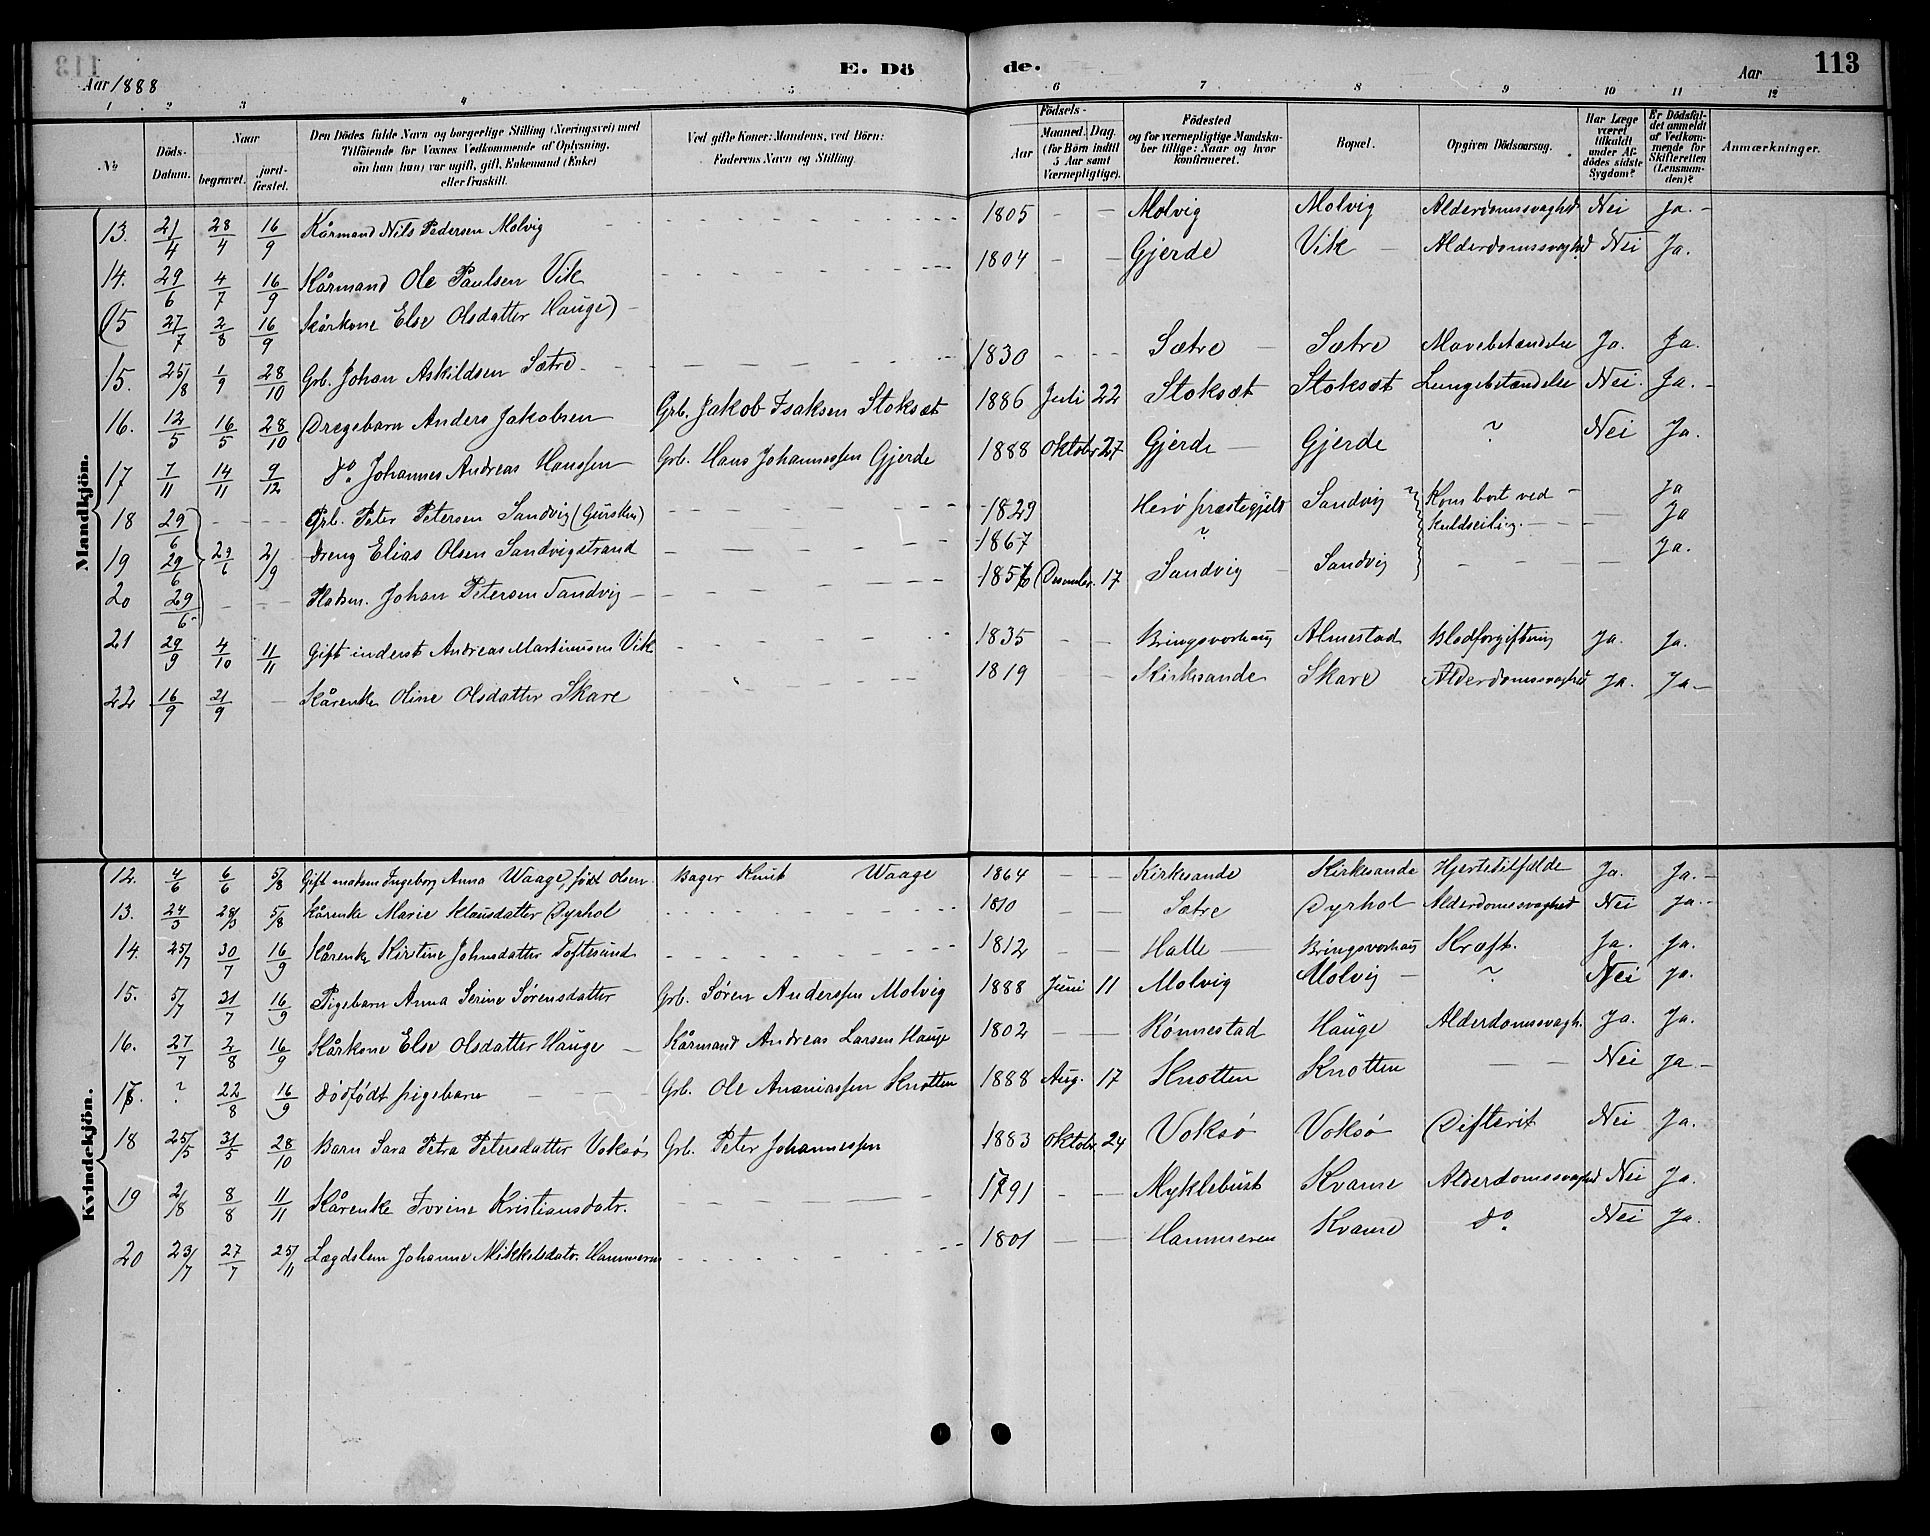 113
Aar 1888
E. Dö
de.
Aar
113
1 2 3 4 5 6 7 8 9 10 11 12
№
Döds-Datum.
Naar
begravet.
jordfæstet.
Den Dödes fulde Navn og borgerlige Stilling (Næringsvei) med Tilföiende for Voxnes Vedkommende af Oplysning, om han (hun) var ugift, gift, Enkemand (Enke) eller fraskilt.
Ved gifte Koner: Mandens, ved Börn: Faderens Navn og Stilling.
Födsels-
Aar
Maaned. Dag.
(for Börn indtil 5 Aar samt Værnepligtige).
Födested og for værnepligtige Mandskaber tillige: Naar og hvor konfirmeret.
Bopæl.
Opgiven Dödsaarsag.
Har Læge været tilkaldt under Afdödes sidste Sygdom?
Er Dödsfaldet anmeldt af Vedkommende for Skifteretten (Lensmanden)?
Anmærkninger.
Mandkjön.
13. 21/4 28/4 16/9 Kårmand Nils Pedersen Molvig - 1805 - - Molvig Molvig Alderdomssvaghed Nei Ja. -
14. 29/6 4/7 16/9 Kårmand Ole Paulsen Vik - 1804 - - Gjerde Vik - Alderdomssvaghed Nei Ja.
(15 27/7 2/8 16/9 Kårkone Else Olsdatter Hauge) -
15. 25/8 1/9 28/10 Grb. Johan Askildsen Sætre - 1830 - - Sætre - Sætre Mavebetændelse Ja. Ja.
16. 12/5 16/5 28/10 Drengebarn Anders Jakobsen Grb. Jakob Isaksen Stoksæt 1886 Juli 22 Stoksæt Stoksæt Lungebetændelse Nei. Ja. -
17 7/11 14/11 9/12 do. Johannes Andreas Hanssen Grb. Hans Johannessen Gjerde 1888 Oktober 27 Gjerde - Gjerde ? Nei Ja.
18 29/6 - - Grb. Peter Petersen Sandvig (Gursken) - 1829 Herø præstegjeld Sandvig Kom bort ved - Ja
19 29/6 29/6 2/9 Dreng Elias Olsen Sandvigstrand - 1867 ? kuldseiling. - - Ja
20 29/6 - - Pladsm. Johan Petersen Sandvig - 1856 December 17 Sandvig - Sandvig - - - Ja.
21 29/9 4/10 11/11 Gift inderst Andreas Martinusen Vik - 1835 - - Bringsvorhaug Almestad Blodforgiftning Ja. Ja.
22 16/9 21/9 - Kårenke Oline Olsdatter Skare - 1819 - - Kirkesande Skare Alderdomssvaghed Ja. Ja -
Kvindekjön.
12. 4/6 6/6 5/8 Gift madam Ingeborg Anna Waage, født Olsen. Bager Knut Waage 1864 - - Kirkesande Kirkesande Hjertetilfælde Ja. Ja. -
13. 24/3 28/3 5/8 Kårenke Marie Klausdatter Dyrhol - 1810 - - Sætre Dyrhol Alderdomssvaghed Nei Ja. -
14. 25/7 30/7 16/9 Kårenke Kirstine Johnsdatter Toftesund - 1812 - - Halle - Bringsvorhaug Kræft. Ja. Ja.
15. 5/7 31/7 16/9 Pigebarn Anna Serine Sørensdatter Grb. Søren Anderssen Molvig 1888 Juni 11 Molvig Molvig - ? Nei Ja.
16. 27/7 2/8 16/9 Kårkone Else Olsdatter Hauge - Kårmand Andreas Larsen Hauge 1802 - - Rønnestad Hauge Alderdomssvagh. Ja. Ja.
17. ? 22/8 16/9 Dødfødt pigebarn - Grb. Ole Ananiassen Knotten 1888 Aug. 17 Knotten Knotten - - Nei Ja -
18 25/5 31/5 28/10 Barn Sara Petra Petersdatter Voksø Grb. Peter Johannessen 1883 Oktober 24 Voksø Voksø Difterit Nei Ja.
19 2/8 8/8 11/11 Kårenke Iverine Kristiansdatr. - 1791 - - Myklebust Kvame Alderdomssvaghed Nei Ja.
20 23/7 27/7 25/11 Lægdslem Johanne Mikkelsdatr. Hammeren - 1801 - - Hammeren Kvame do. Nei Ja.